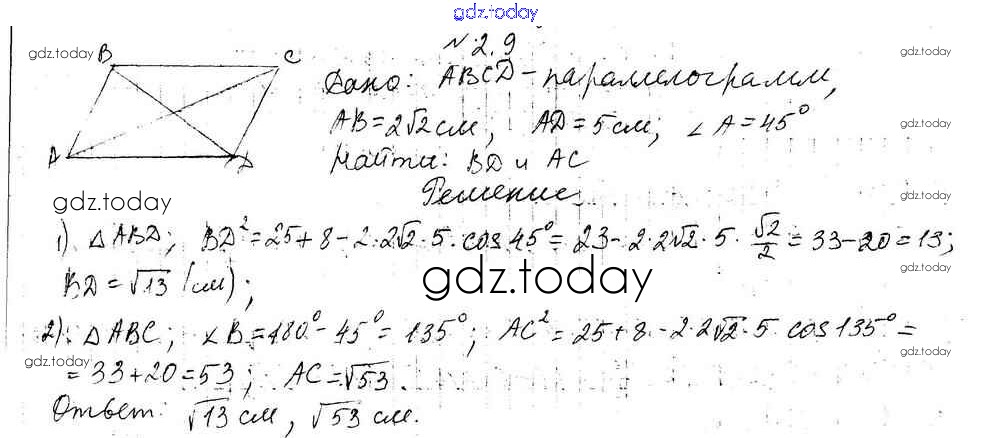 gdz.today
№ 2.9
gdz.today
B C
Дано: ABCD – параллелограмм,
gdz.today
AB = 2√2 см; AD = 5 см; ∠A = 45°
A D
Найти: BD и AC
gdz.today
Решение.
gdz.today
1). △ABD; BD² = 25 + 8 – 2·2√2·5·cos 45° = 23 – 2·2√2·5·√2/2 = 33 – 20 = 13;
gdz.today
BD = √13 (см);
gdz.today
2). △ABC; ∠B = 180° – 45° = 135°; AC² = 25 + 8 – 2·2√2·5 cos 135° =
gdz.today
gdz.today
= 33 + 20 = 53; AC = √53.
Ответ: √13 см, √53 см.